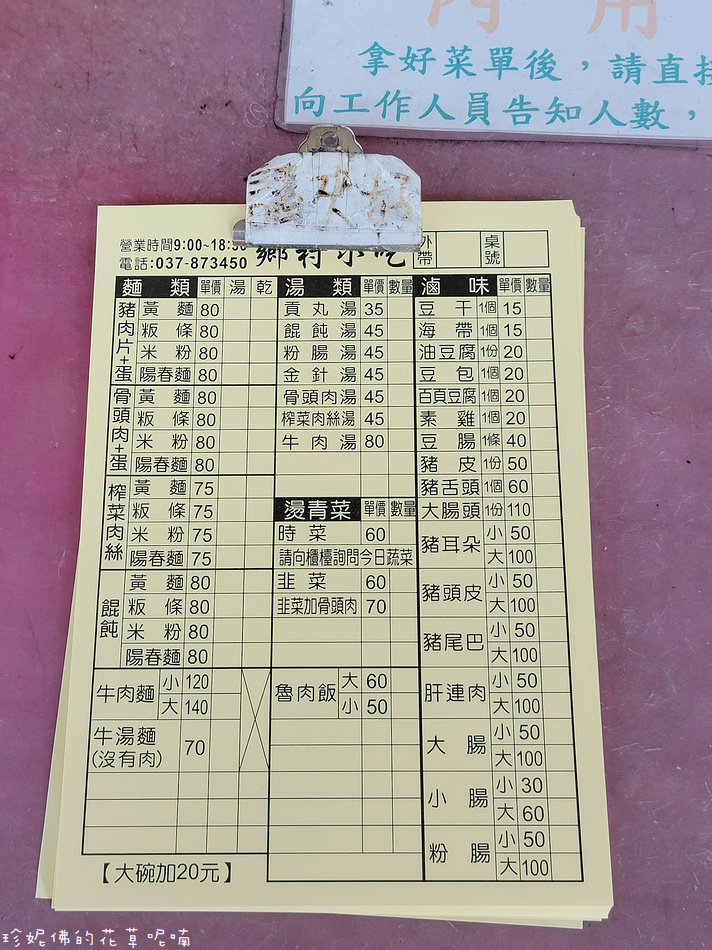 內用
拿好菜單後，請直接
向工作人員告知人數，
營業時間9:00~18:30
電話:037-873450
鄉村小吃
外帶
桌號
麵類 單價 湯 乾
豬肉片+蛋
黃麵 80
粄條 80
米粉 80
陽春麵 80
骨頭肉+蛋
黃麵 80
粄條 80
米粉 80
陽春麵 80
榨菜肉絲
黃麵 75
粄條 75
米粉 75
陽春麵 75
餛飩
黃麵 80
粄條 80
米粉 80
陽春麵 80
牛肉麵 小 120
大 140
牛湯麵
(沒有肉) 70
【大碗加20元】
湯類 單價 數量
貢丸湯 35
餛飩湯 45
粉腸湯 45
金針湯 45
骨頭肉湯 45
榨菜肉絲湯 45
牛肉湯 80
燙青菜 單價 數量
時菜 60
請向櫃檯詢問今日蔬菜
韭菜 60
韭菜加骨頭肉 70
魯肉飯 大 60
小 50
滷味 單價 數量
豆干 1個 15
海帶 1個 15
油豆腐 1份 20
豆包 1個 20
百頁豆腐 1個 20
素雞 1個 20
豆腸 1條 40
豬皮 1份 50
豬舌頭 1個 60
大腸頭 1份 110
豬耳朵 小 50
大 100
豬頭皮 小 50
大 100
豬尾巴 小 50
大 100
肝連肉 小 50
大 100
大腸 小 50
大 100
小腸 小 30
大 60
粉腸 小 50
大 100
珍妮佛的花草呢喃